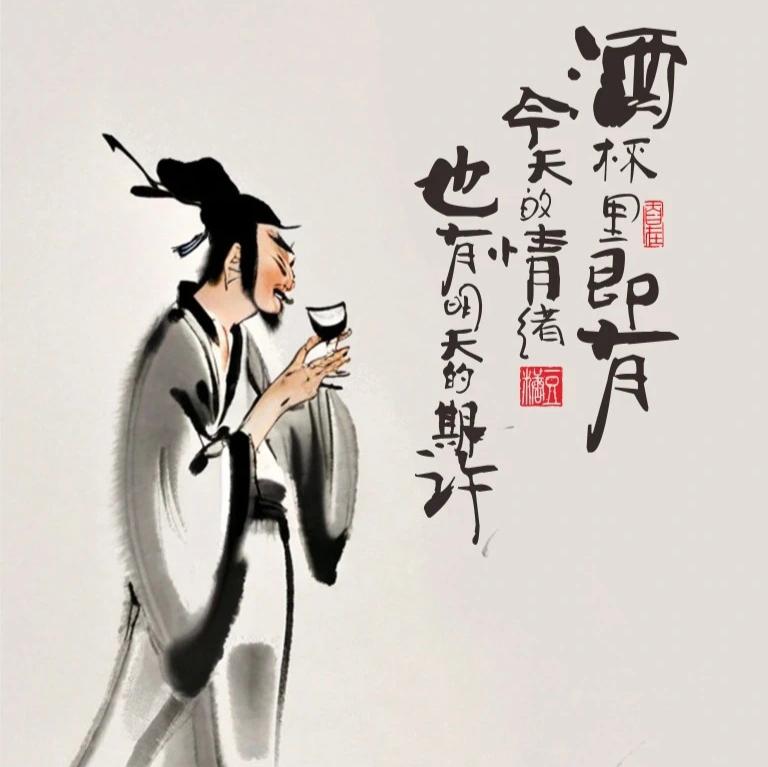 酒杯里即有
今天的情绪
也有明天的期许